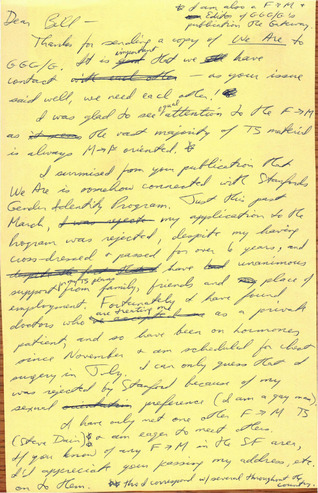 * I am also a F→M +
Editor of GGG/G's
publication the Gateway
Dear Bill —
Thanks for sending a copy of We Are to
GGG/G. It is important that we have
contact with each other — as your issue
said well, we need each other!
I was glad to see equal attention to the F→M
as the vast majority of TS material
is always M→F oriented.
I surmised from your publication that
We Are is somehow connected with Stanford's
Gender Identity Program. Just this past
March, my application to the
Program was rejected, despite my having
cross-dressed & passed for over 6 years, and
have had unanimous
support from family, friends and my place of
employment. Fortunately I have found
doctors who are treating me as a private
patient, and so have been on hormones
since November & am scheduled for chest
surgery in July. I can only guess that I
was rejected by Stanford because of my
sexual preference (I am a gay man).
I have only met one other F→M TS
(Steve Dain) & am eager to meet others.
If you know of any F→M in the SF area,
I'd appreciate your passing my address, etc.
on to them. tho I correspond w/ several throughout the
country.